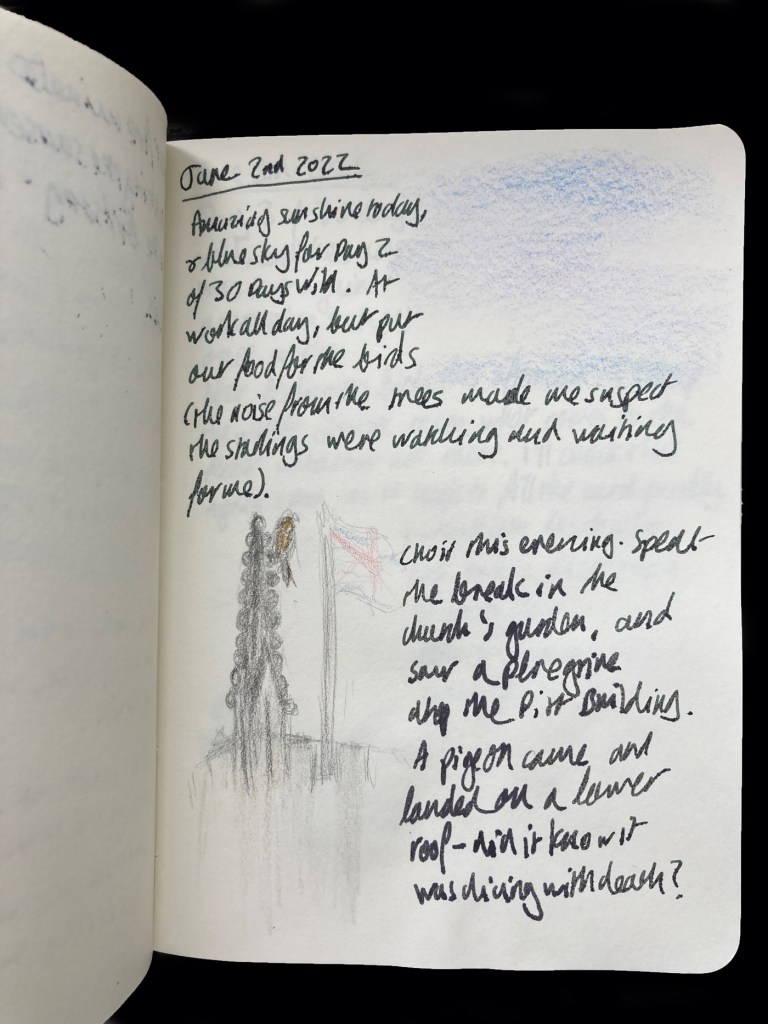 June 2nd 2022
Amazing sunshine today,
& blue sky for Day 2
of 30 Days Wild. At
work all day, but put
out food for the birds
(the noise from the trees made me suspect
the starlings were watching and waiting
for me).
Choir this evening. Spent
the break in the
church's garden, and
saw a peregrine
atop the Pitt Building.
A pigeon came and
landed on a lower
roof - did it know it
was dicing with death?